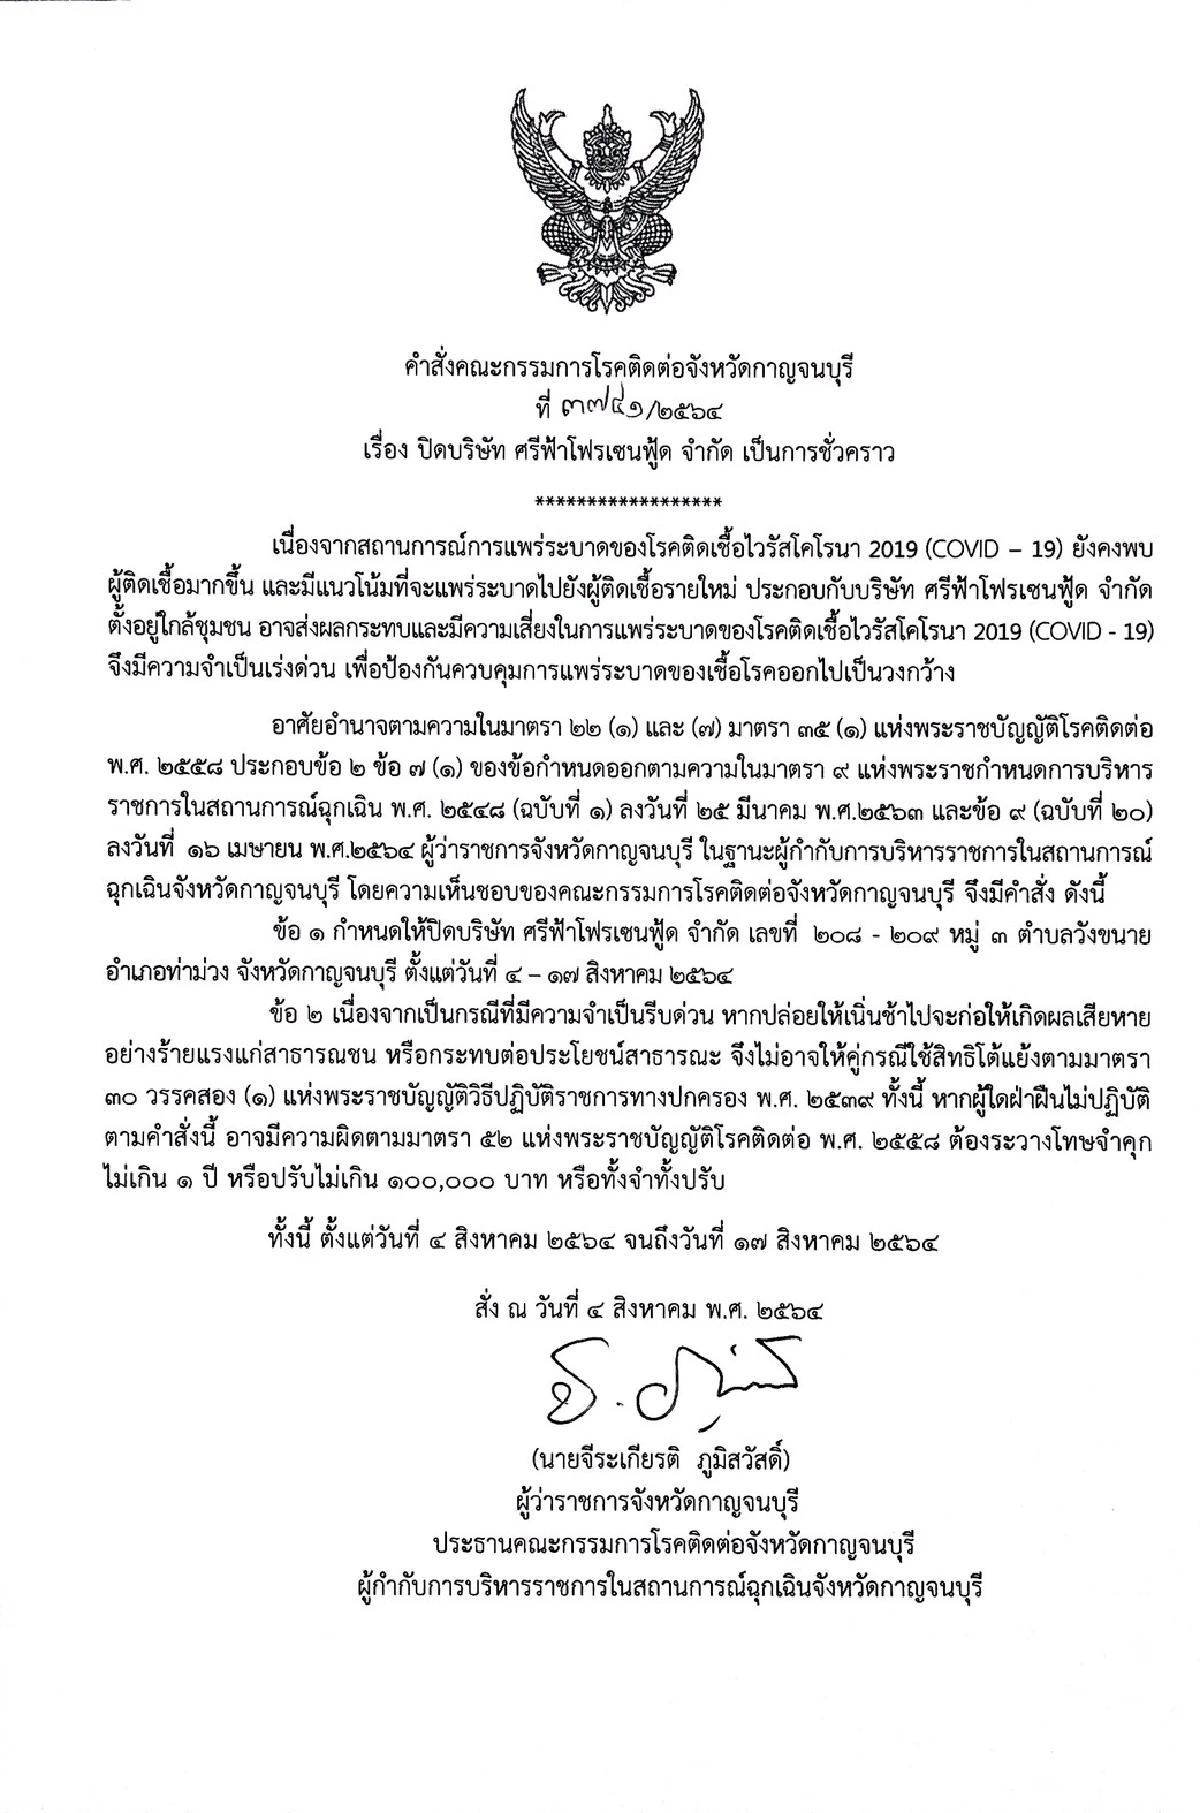 คำสั่งคณะกรรมการโรคติดต่อจังหวัดกาญจนบุรี
ที่ ๓๗๔๑/๒๕๖๔
เรื่อง ปิดบริษัท ศรีฟ้าโฟรเซนฟู้ด จำกัด เป็นการชั่วคราว
******************
เนื่องจากสถานการณ์การแพร่ระบาดของโรคติดเชื้อไวรัสโคโรนา 2019 (COVID – 19) ยังคงพบ
ผู้ติดเชื้อมากขึ้น และมีแนวโน้มที่จะแพร่ระบาดไปยังผู้ติดเชื้อรายใหม่ ประกอบกับบริษัท ศรีฟ้าโฟรเซนฟู้ด จำกัด
ตั้งอยู่ใกล้ชุมชน อาจส่งผลกระทบและมีความเสี่ยงในการแพร่ระบาดของโรคติดเชื้อไวรัสโคโรนา 2019 (COVID - 19)
จึงมีความจำเป็นเร่งด่วน เพื่อป้องกันควบคุมการแพร่ระบาดของเชื้อโรคออกไปเป็นวงกว้าง
อาศัยอำนาจตามความในมาตรา ๒๒ (๑) และ (๗) มาตรา ๓๕ (๑) แห่งพระราชบัญญัติโรคติดต่อ
พ.ศ. ๒๕๕๘ ประกอบข้อ ๒ ข้อ ๗ (๑) ของข้อกำหนดออกตามความในมาตรา ๙ แห่งพระราชกำหนดการบริหาร
ราชการในสถานการณ์ฉุกเฉิน พ.ศ. ๒๕๔๘ (ฉบับที่ ๑) ลงวันที่ ๒๕ มีนาคม พ.ศ.๒๕๖๓ และข้อ ๙ (ฉบับที่ ๒๐)
ลงวันที่ ๑๖ เมษายน พ.ศ.๒๕๖๔ ผู้ว่าราชการจังหวัดกาญจนบุรี ในฐานะผู้กำกับการบริหารราชการในสถานการณ์
ฉุกเฉินจังหวัดกาญจนบุรี โดยความเห็นชอบของคณะกรรมการโรคติดต่อจังหวัดกาญจนบุรี จึงมีคำสั่ง ดังนี้
ข้อ ๑ กำหนดให้ปิดบริษัท ศรีฟ้าโฟรเซนฟู้ด จำกัด เลขที่ ๒๐๘ - ๒๐๙ หมู่ ๓ ตำบลวังขนาย
อำเภอท่าม่วง จังหวัดกาญจนบุรี ตั้งแต่วันที่ ๔ – ๑๗ สิงหาคม ๒๕๖๔
ข้อ ๒ เนื่องจากเป็นกรณีที่มีความจำเป็นรีบด่วน หากปล่อยให้เนิ่นช้าไปจะก่อให้เกิดผลเสียหาย
อย่างร้ายแรงแก่สาธารณชน หรือกระทบต่อประโยชน์สาธารณะ จึงไม่อาจให้คู่กรณีใช้สิทธิโต้แย้งตามมาตรา
๓๐ วรรคสอง (๑) แห่งพระราชบัญญัติวิธีปฏิบัติราชการทางปกครอง พ.ศ. ๒๕๓๙ ทั้งนี้ หากผู้ใดฝ่าฝืนไม่ปฏิบัติ
ตามคำสั่งนี้ อาจมีความผิดตามมาตรา ๕๒ แห่งพระราชบัญญัติโรคติดต่อ พ.ศ. ๒๕๕๘ ต้องระวางโทษจำคุก
ไม่เกิน ๑ ปี หรือปรับไม่เกิน ๑๐๐,๐๐๐ บาท หรือทั้งจำทั้งปรับ
ทั้งนี้ ตั้งแต่วันที่ ๔ สิงหาคม ๒๕๖๔ จนถึงวันที่ ๑๗ สิงหาคม ๒๕๖๔
สั่ง ณ วันที่ ๔ สิงหาคม พ.ศ. ๒๕๖๔
(นายจีระเกียรติ ภูมิสวัสดิ์)
ผู้ว่าราชการจังหวัดกาญจนบุรี
ประธานคณะกรรมการโรคติดต่อจังหวัดกาญจนบุรี
ผู้กำกับการบริหารราชการในสถานการณ์ฉุกเฉินจังหวัดกาญจนบุรี